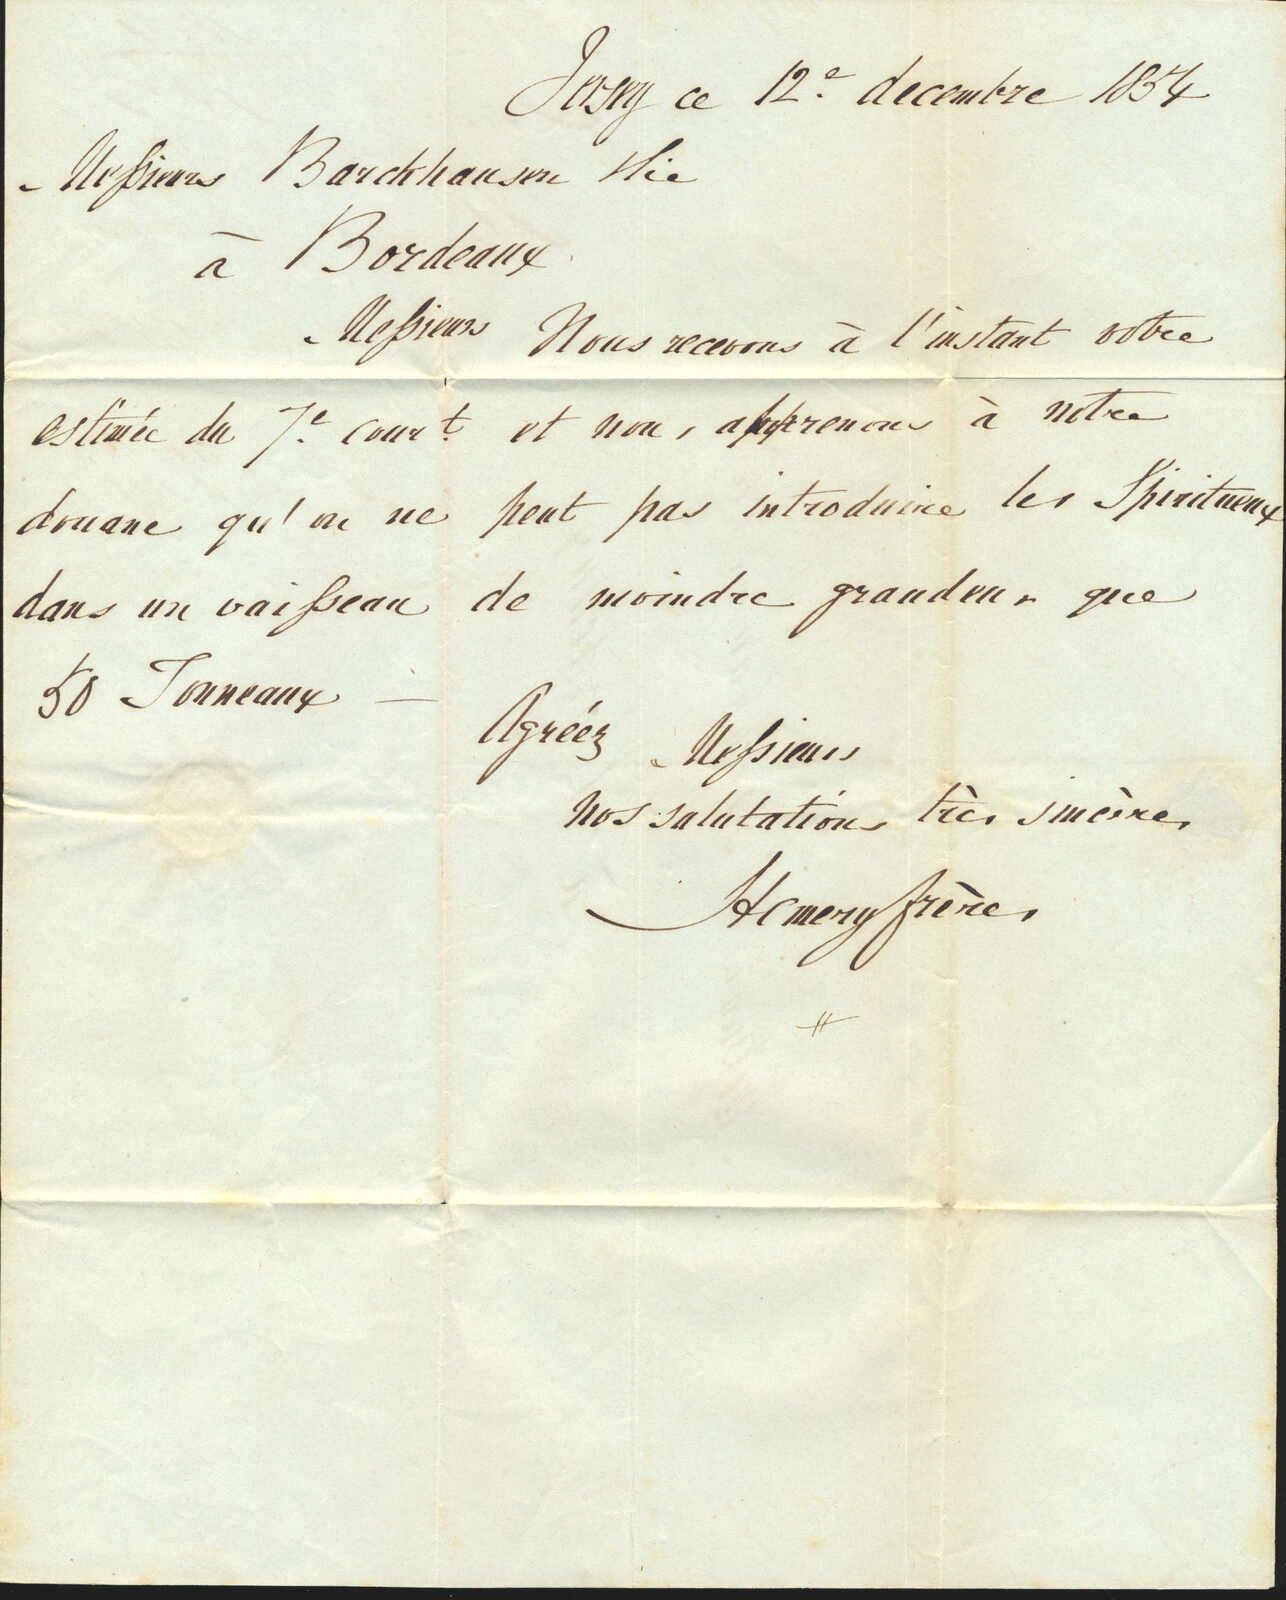 Jersey ce 12e decembre 1854
Messieurs Barckhausen & Cie
à Bordeaux
Messieurs Nous recevons à l'instant votre
estimée du 7e court et nous apprenons à notre
douane qu'on ne peut pas introduire les Spiritueux
dans un vaisseau de moindre grandeur que
50 Tonneaux —
Agréez Messieurs
nos salutations très sincères
Hemery frères